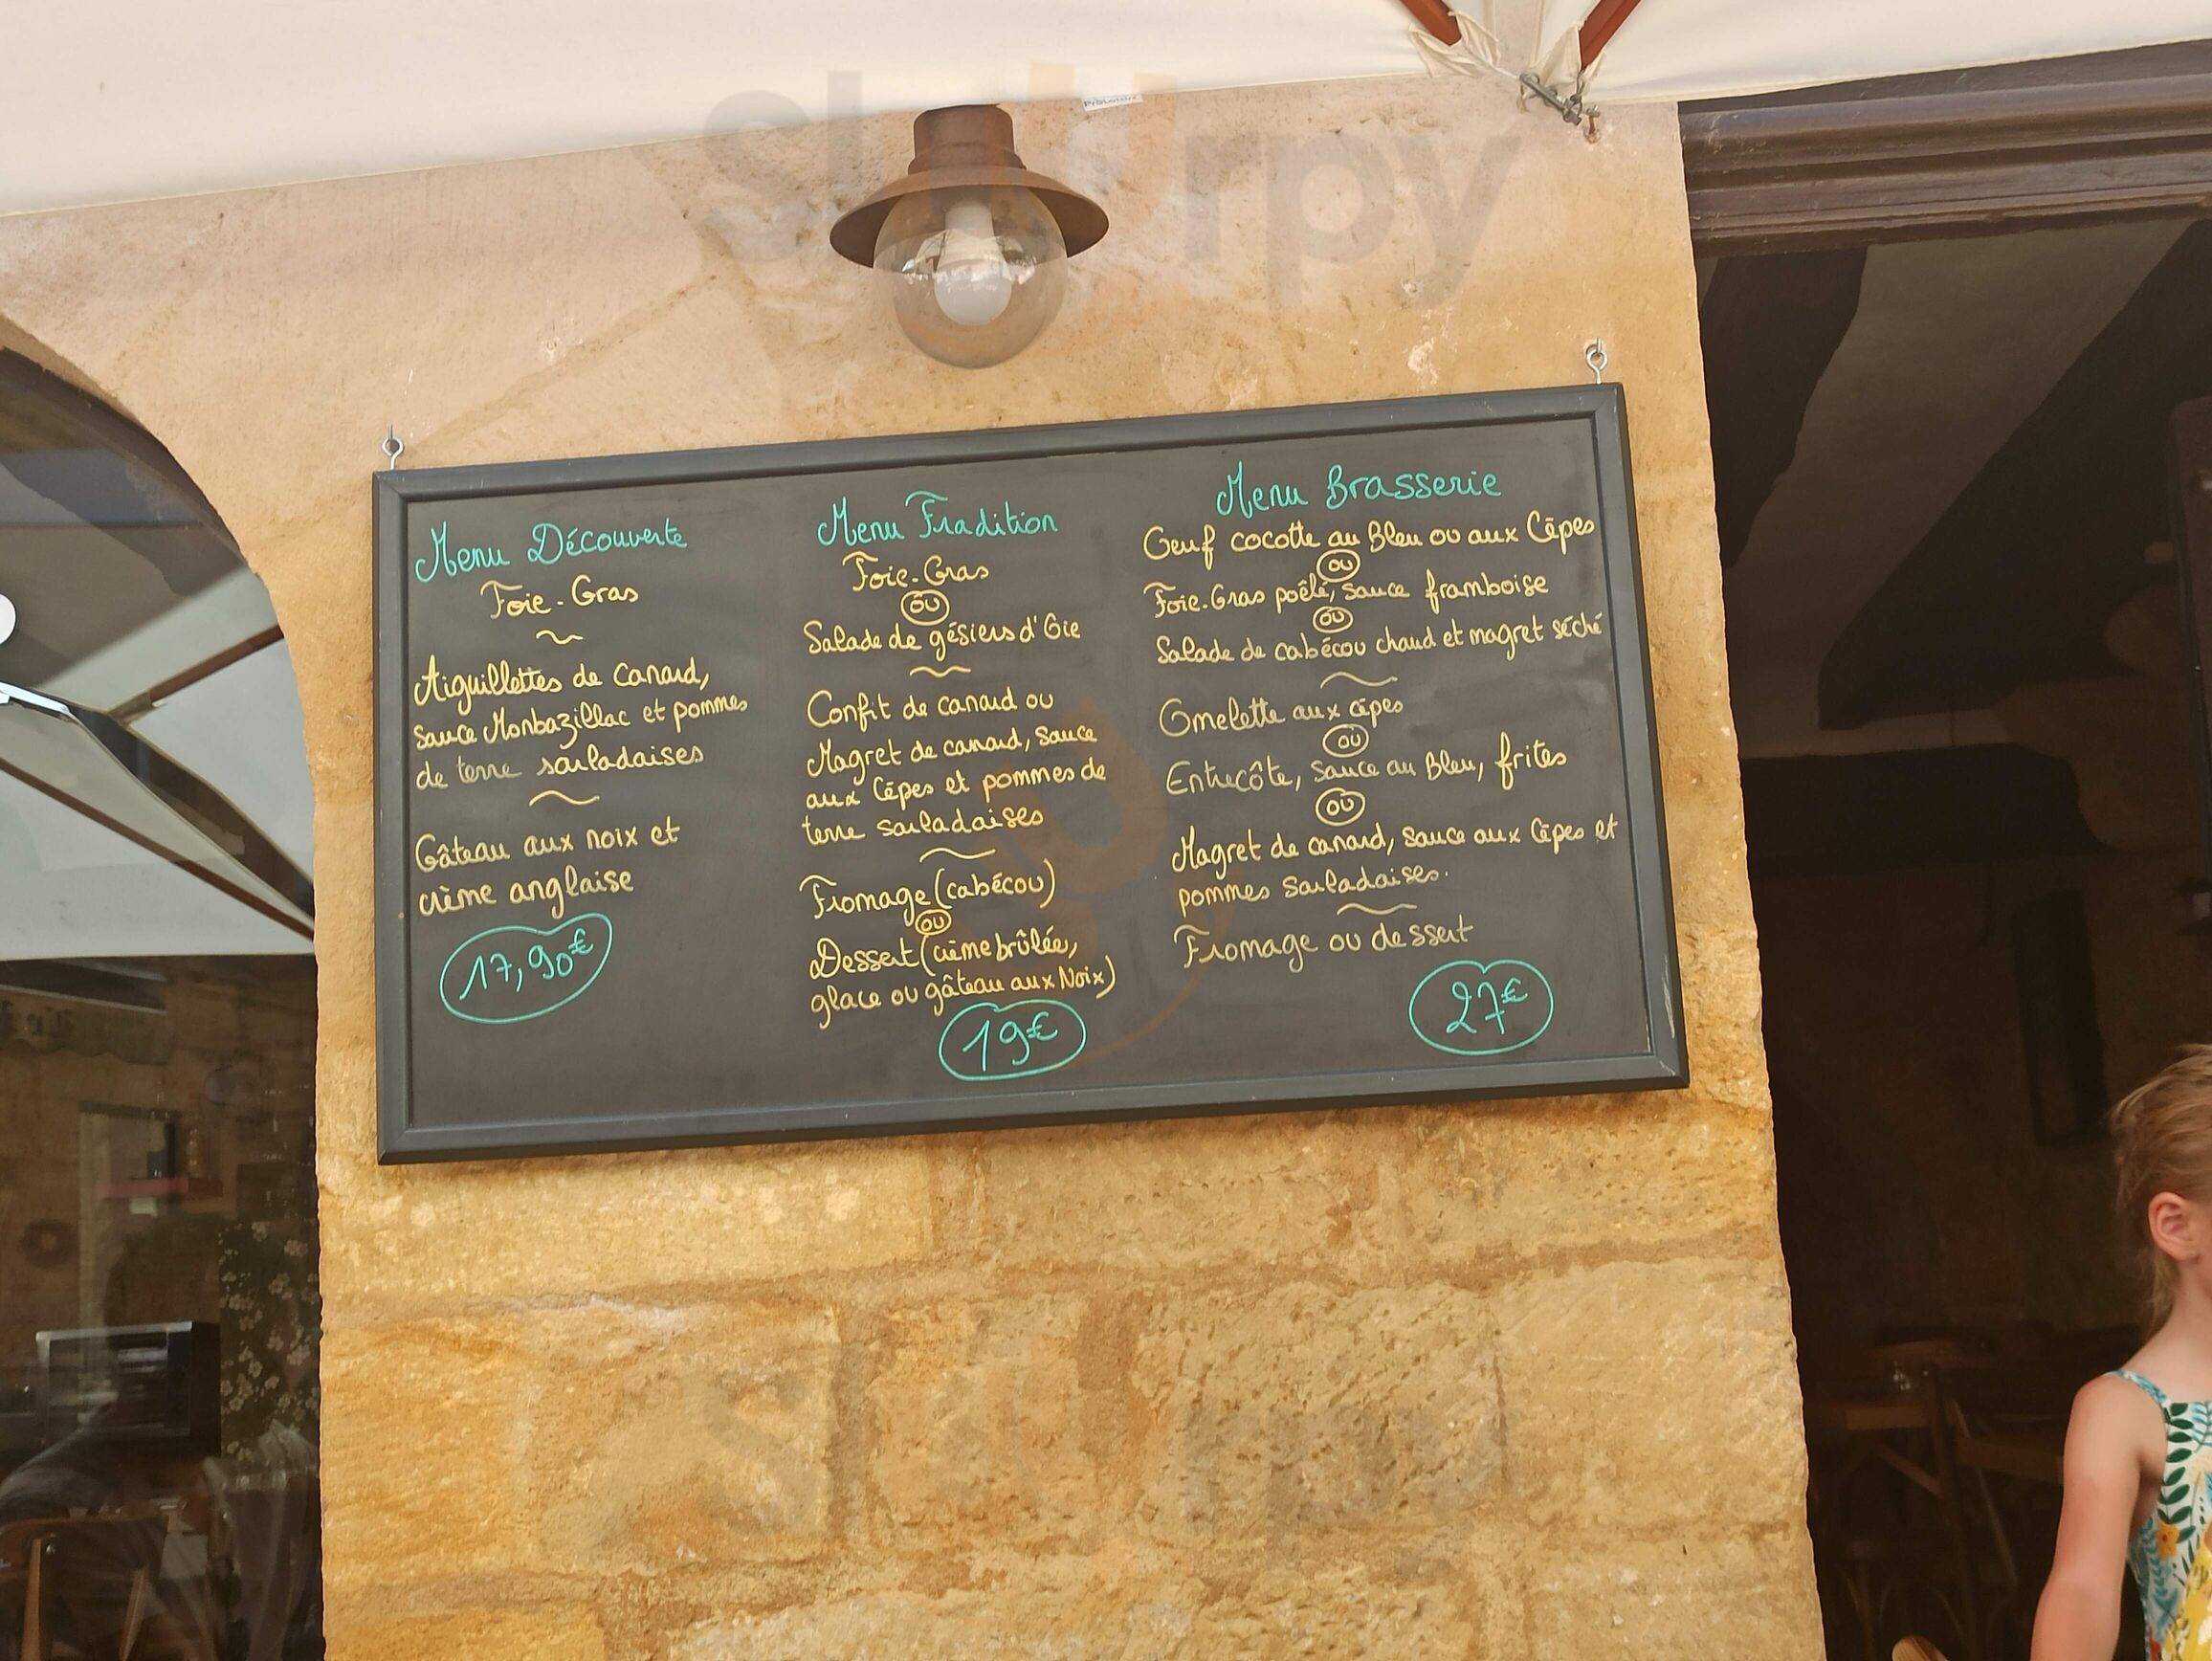 slurpy
Menu Découverte
Foie-Gras
Aiguillettes de canard,
sauce Monbazillac et pommes
de terre sarladaises
Gâteau aux noix et
crème anglaise
17,90€
Menu Tradition
Foie-Gras
ou
Salade de gésiers d'Oie
Confit de canard ou
Magret de canard, sauce
aux Cèpes et pommes de
terre sarladaises
Fromage (cabécou)
ou
Dessert (crème brûlée,
glace ou gâteau aux Noix)
19€
Menu Brasserie
Oeuf cocotte au Bleu ou aux Cèpes
ou
Foie-Gras poêlé, sauce framboise
ou
Salade de cabécou chaud et magret séché
Omelette aux cèpes
ou
Entrecôte, sauce au Bleu, frites
ou
Magret de canard, sauce aux Cèpes et
pommes sarladaises.
Fromage ou dessert
27€
slurpy